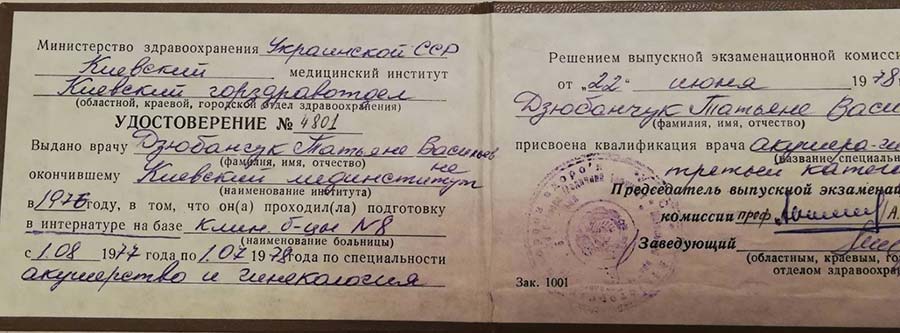 Министерство здравоохранения Украинской ССР
Киевский медицинский институт
Киевский горздравотдел
(областной, краевой, городской отдел здравоохранения)
УДОСТОВЕРЕНИЕ № 4801
Выдано врачу Дзюбанчук Татьяне Васильев
(фамилия, имя, отчество) не
окончившему Киевский мединститут
(наименование института)
в 1976 году, в том, что он(а) проходил(ла) подготовку
в интернатуре на базе Клин. б-цы №8
(наименование больницы)
с 1.08 1977 года по 1.07 1978 года по специальности
акушерство и гинекология
Решением выпускной экзаменационной комисси
от „22" июня 1978
Дзюбанчук Татьяне Васи
(фамилия, имя, отчество)
присвоена квалификация врача акушера-ги
(название специальн
третьей катег
Председатель выпускной экзаменай
комиссии проф.
Заведующий
(областным, краевым, го
отделом здравоохра
Зак. 1001